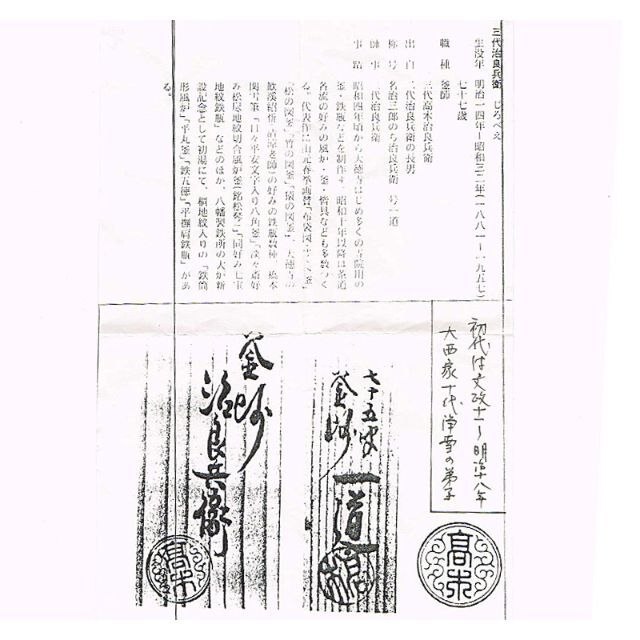 三代治良兵衛 じろべえ
生没年 明治一四年－昭和三二年（一八八一－一九五七）
七十七歳
職種 釜師
出自 二代治良兵衛の長男
三代高木治良兵衛
称号 名治三郎のち治良兵衛 号一道
師事 二代治良兵衛
事跡 昭和四年頃から大徳寺はじめ多くの寺院用の
釜・鉄瓶などを制作す。昭和十年以降は茶道
各流の好みの風炉・釜・皆具なども多数つく
る。代表作に山元春挙画賛「布袋図
「松の図釜」「竹の図釜」「猿の図釜」、大徳寺の
好みの鉄瓶数種
「日々平安文字入り八角釜」、淡々斎好
み松尽地紋切合風炉釜「同好み七宝
地紋鉄瓶」などのほか、八幡製鉄所の大炉新
設記念として初湯にて、桐地紋入りの「鉄筒
形風炉」「平丸釜」「鉄五徳」「平撫肩鉄瓶」があ
る。
初代は文政十一～明治十八年
大西家十代浄雪の弟子
七十五叟
釜師 一道
釜師
治良兵衛
高木
高木